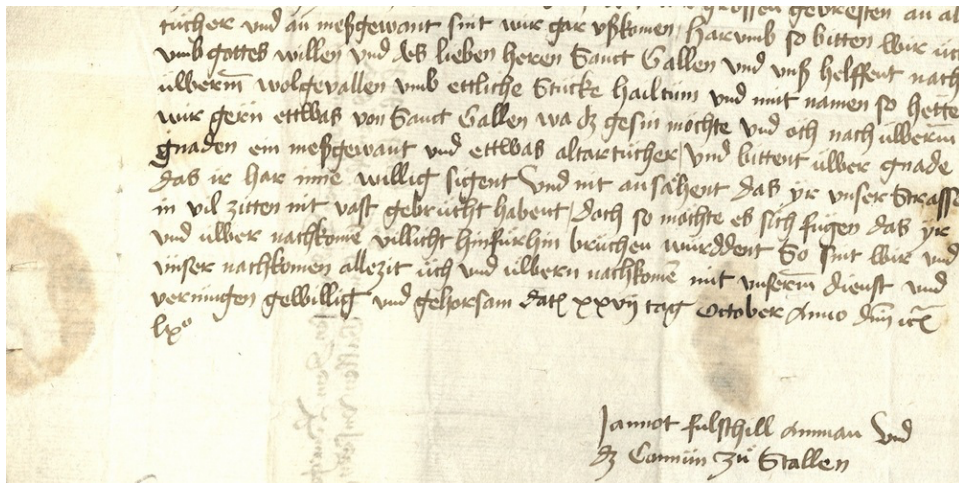 grossen gebresten an al
tücher und an meßgewant sint wir gar uskomen Harumb so bitten wir üch
umb gottes willen und des lieben heren Sanct Gallen und unß helffent nach
üwerm̄ wolgevallen umb ettliche Stücke hailtum und mit namen so hette
wir gern ettwas von Sanct Gallen wa dz gesin möchte und och nach üwerm
gnaden ein meßgewant und ettwas altartücher / und bittent üwer gnade
das ir har inne willig sigent Und nit ansähent das yr unser Strasse
in vil zitten nit vast gebrucht habent / doch so möchte es sich fügen das yr
und üwer nachkomē villicht hinfürhin bruchen wurddent So sint wir und
unser nachkomen allezit üch und üwern nachkomē mit unserm̄ dienst und
vermugen gewillig und gehorsam dat xxvij tag October Anno dn̄i
lxº
Jannot fulschill Amman Und
dz Comūn zů Stallen